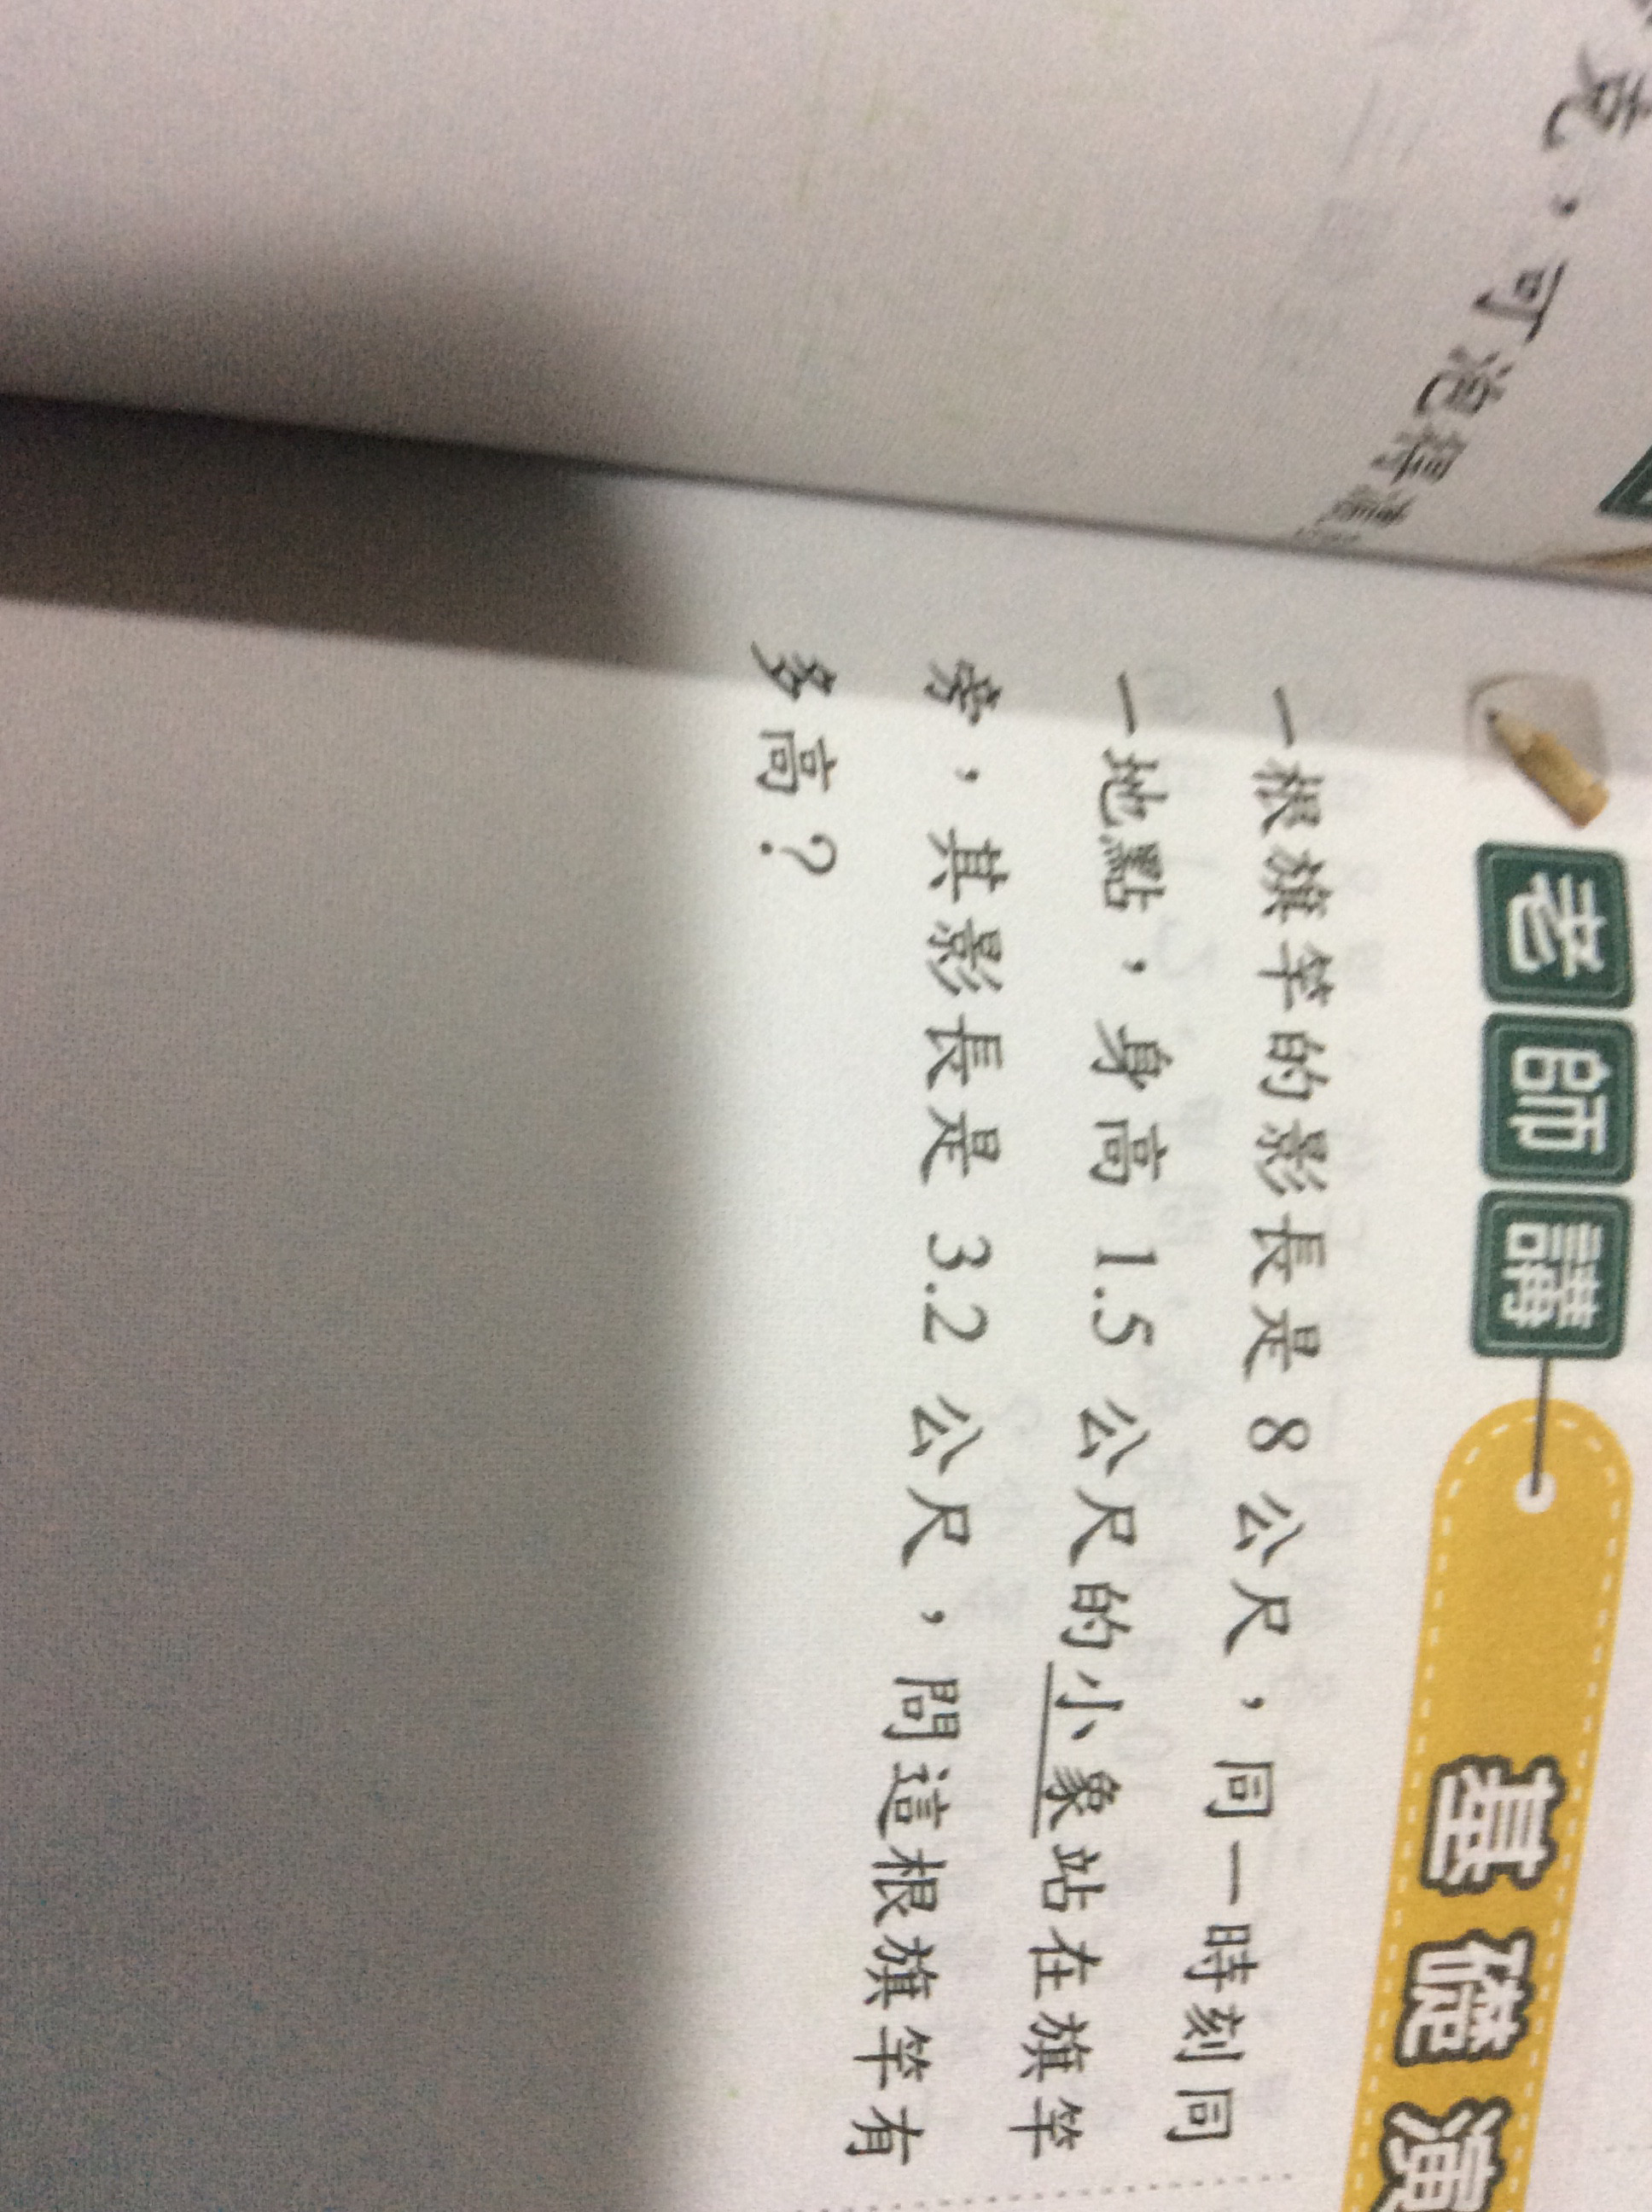 老師講
基礎演
一根旗竿的影長是 8 公尺，同一時刻同
一地點，身高 1.5 公尺的小象站在旗竿
旁，其影長是 3.2 公尺，問這根旗竿有
多高？